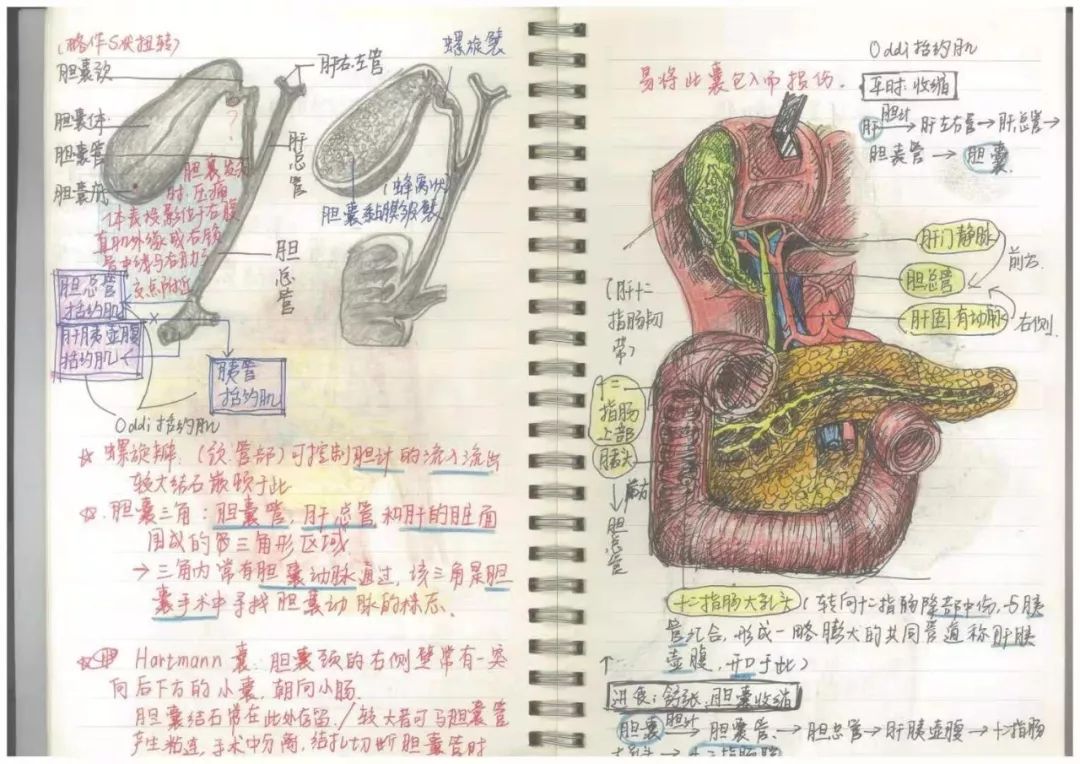 (略作S状扭转)
胆囊颈
胆囊体
胆囊管
胆囊底
肝右左管
肝总管
胆总管
螺旋襞
(蜂窝状)
胆囊黏膜皱襞
胆囊发炎
时压痛
体表投影位于右腹
直肌外缘或右锁
骨中线与右肋弓
交点附近
?
胆总管
括约肌
肝胰壶腹
括约肌
胰管
括约肌
Oddi括约肌
☆ 螺旋瓣.(颈管部)可控制胆汁的流入流出
较大结石嵌顿于此
☆. 胆囊三角:胆囊管,肝总管和肝的脏面
围成的三角形区域
→ 三角内常有胆囊动脉通过,该三角是胆
囊手术中寻找胆囊动脉的标志.
Hartmann囊:胆囊颈的右侧壁常有一突
向后下方的小囊,朝向小肠.
胆囊结石常在此处存留./较大者可与胆囊管
产生粘连,手术中分离,结扎切断胆囊管时
易将此囊包入而损伤.
Oddi括约肌
平时:收缩
肝 胆汁→ 肝左右管→肝总管→
胆囊管 → 胆囊
肝门静脉
前方.
胆总管
肝固有动脉
右侧
(肝十二指肠韧带)
十二指肠上部
胰头
前方
胆总管
十二指肠大乳头(转向十二指肠降部中份,与胰
管汇合,形成一略膨大的共同管道称肝胰
壶腹,开口于此)
进食:舒张.胆囊收缩
胆囊 胆汁→ 胆囊管.→胆总管→肝胰壶腹→十二指肠